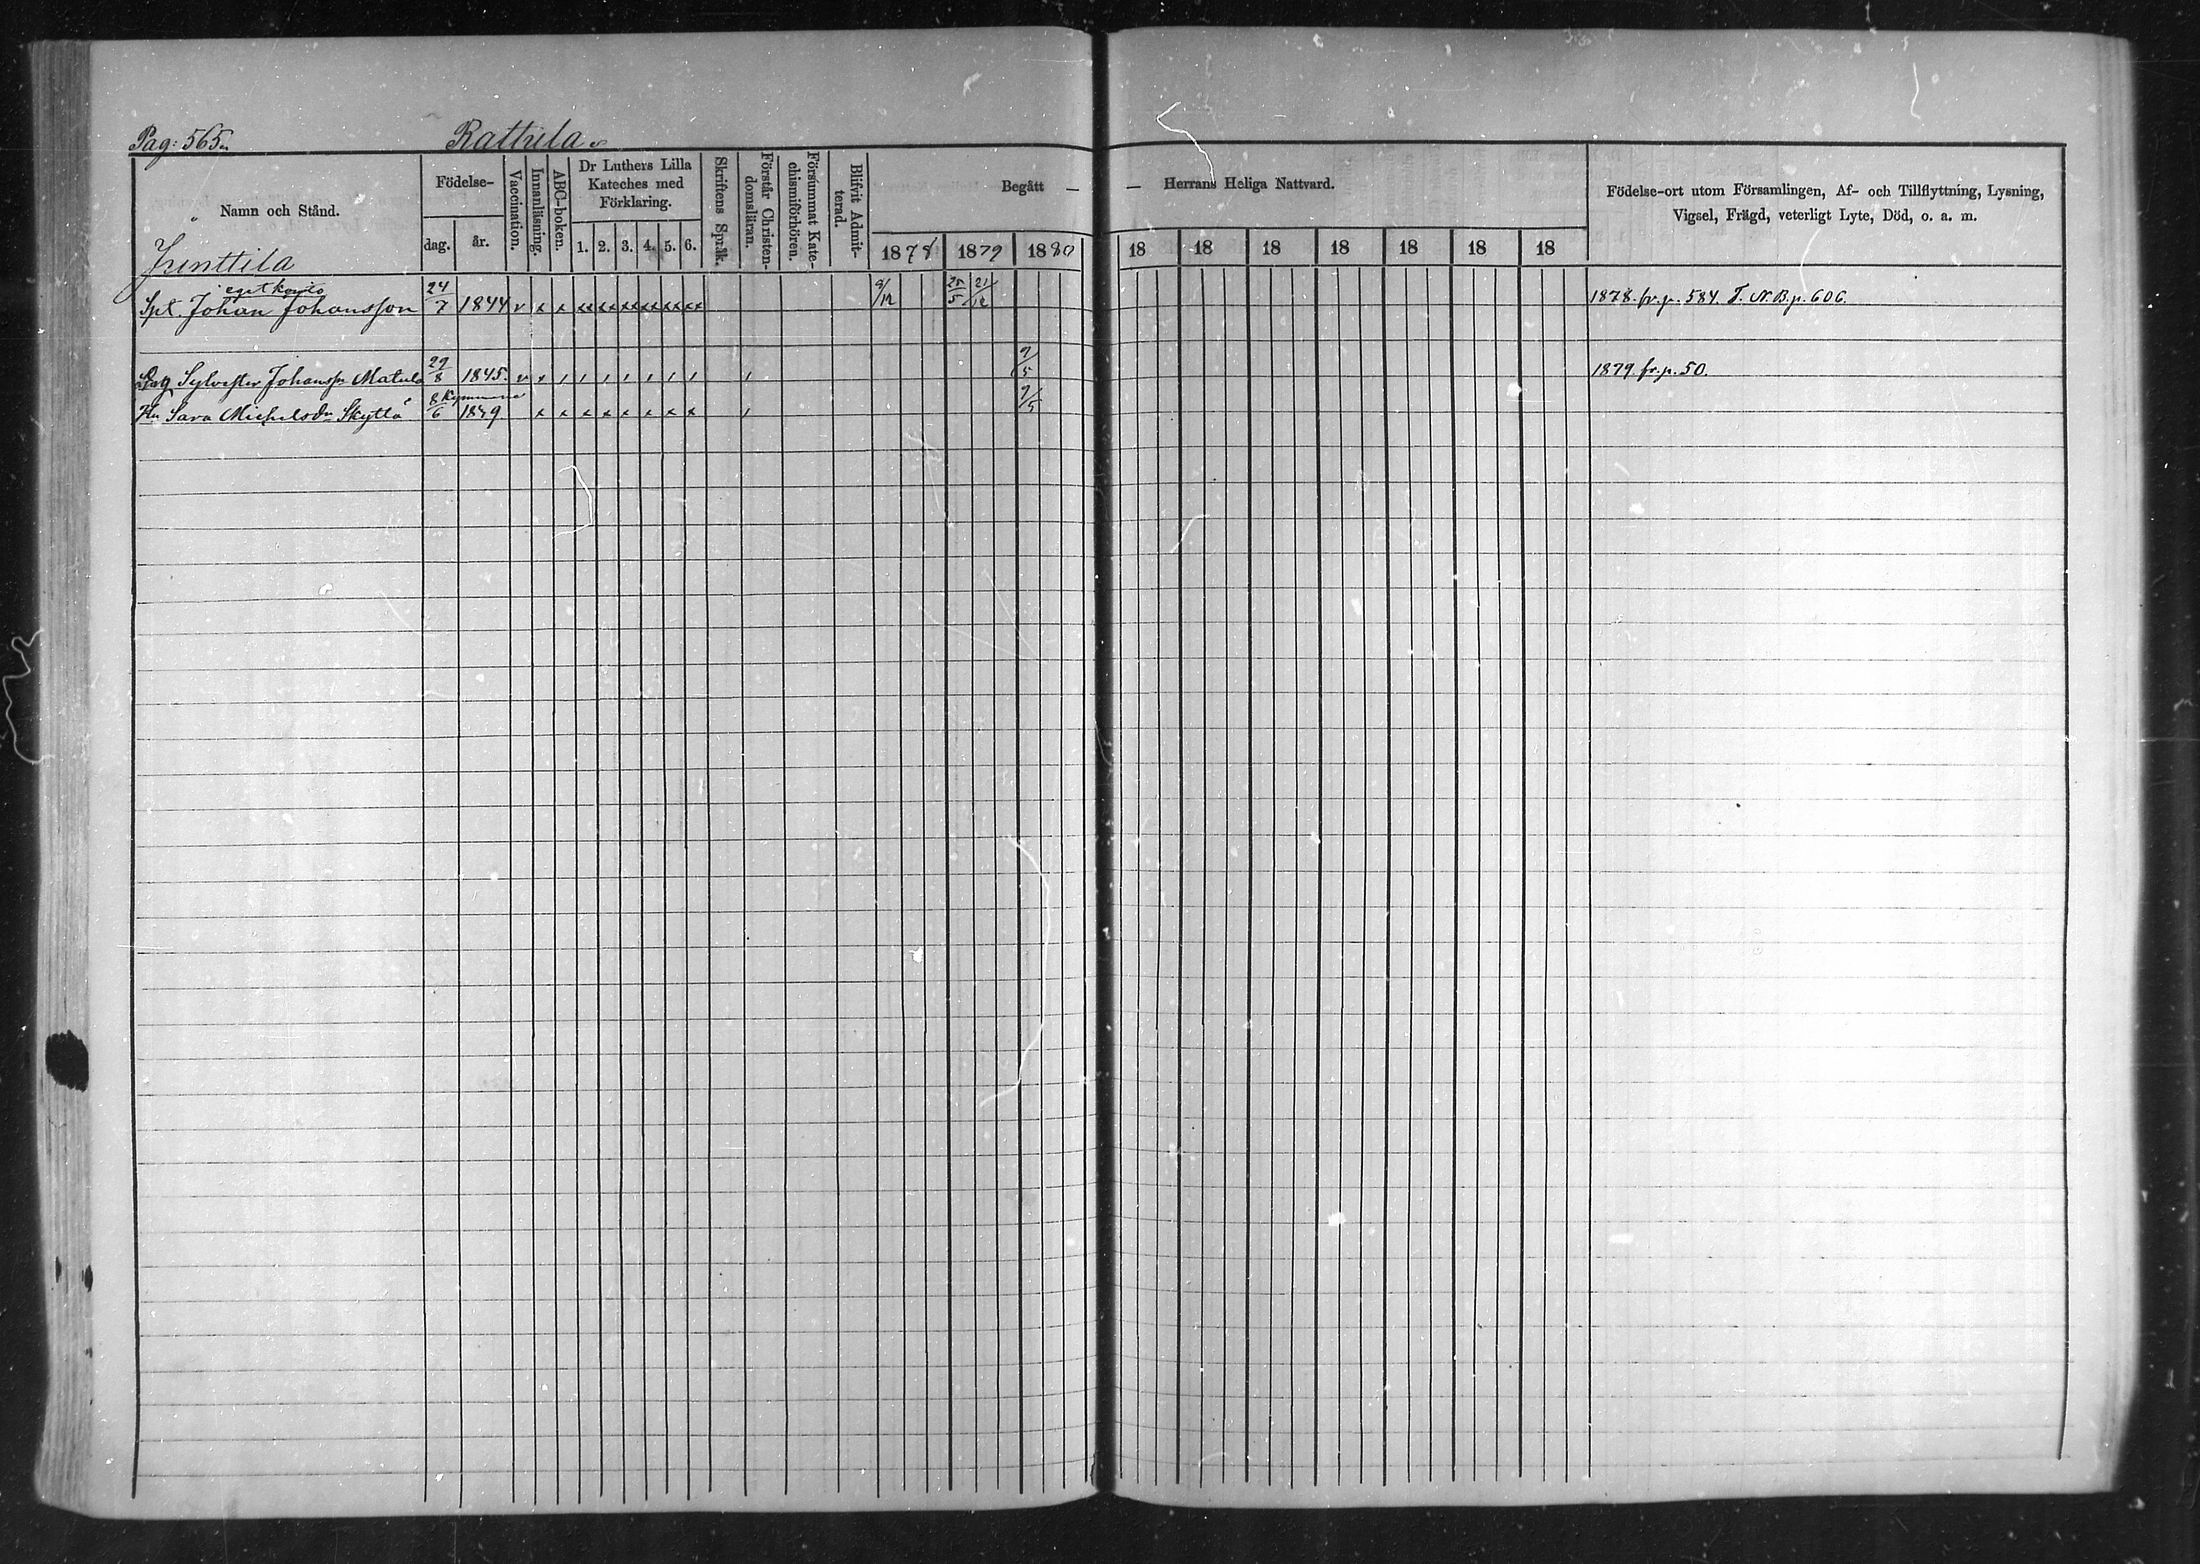 Pag: 565. Rattula
Namn och Stånd. Födelse- dag. år. Vaccination. Innanläsning. ABC-boken. Dr Luthers Lilla Kateches med Förklaring. 1. 2. 3. 4. 5. 6. Skriftens Språk. Förstår Christendomsläran. Försummat Katechismiförhören. Blifvit Admitterad. Begått — — Herrans Heliga Nattvard. Födelse-ort utom Församlingen, Af- och Tillflyttning, Lysning, Vigsel, Frägd, veterligt Lyte, Död, o. a. m.
1878 1879 1880 18 18 18 18 18 18 18
Junttila
eget konto
Spt. Johan Johansson 24/7 1844 v x x xx xx xx xx xx xx 9/12 25/5 21/12 1878. fr. p. 584. T. N.B. p. 606.
Sylvester Johansson Matula 29/8 1845. v x / / / / / / / / 9/5 1879 fr. p. 50.
Kymmene
Hu Sara Michelsdr Skyttä 8/6 1849 x x x x x x x x / 9/5